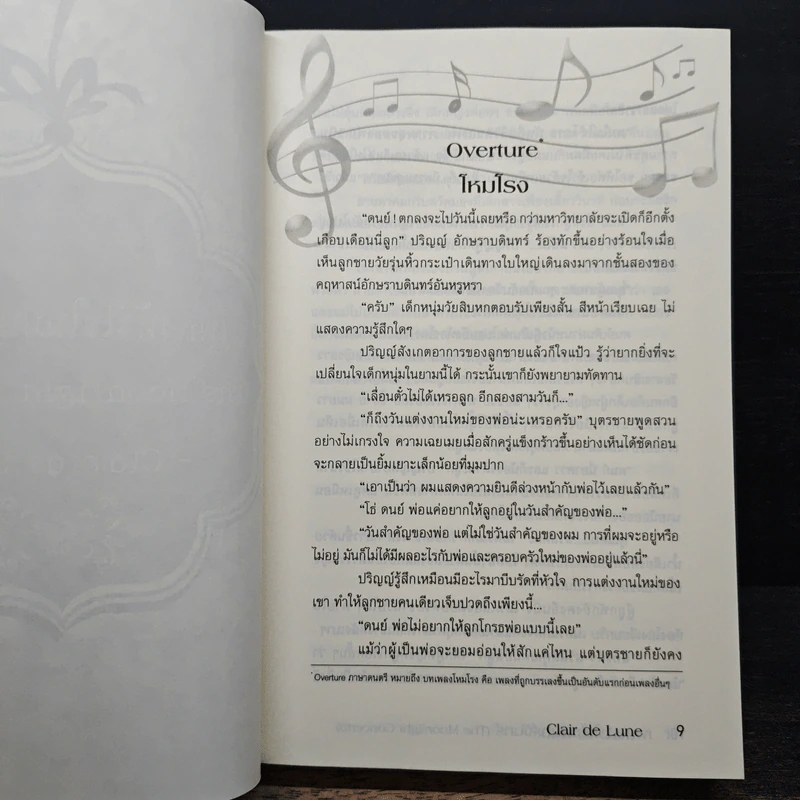 Overture*
โหมโรง
“ดนย์! ตกลงจะไปวันนี้เลยหรือ กว่ามหาวิทยาลัยจะเปิดก็อีกตั้ง
เกือบเดือนนี่ลูก” ปริญญ์ อักษราบดินทร์ ร้องทักขึ้นอย่างร้อนใจเมื่อ
เห็นลูกชายวัยรุ่นหิ้วกระเป๋าเดินทางใบใหญ่เดินลงมาจากชั้นสองของ
คฤหาสน์อักษราบดินทร์อันหรูหรา
“ครับ” เด็กหนุ่มวัยสิบหกตอบรับเพียงสั้น สีหน้าเรียบเฉย ไม่
แสดงความรู้สึกใดๆ
ปริญญ์สังเกตอาการของลูกชายแล้วก็ใจแป้ว รู้ว่ายากยิ่งที่จะ
เปลี่ยนใจเด็กหนุ่มในยามนี้ได้ กระนั้นเขาก็ยังพยายามทัดทาน
“เลื่อนตั๋วไม่ได้เหรอลูก อีกสองสามวันก็...”
“ก็ถึงวันแต่งงานใหม่ของพ่อน่ะเหรอครับ” บุตรชายพูดสวน
อย่างไม่เกรงใจ ความเฉยเมยเมื่อสักครู่แข็งกร้าวขึ้นอย่างเห็นได้ชัดก่อน
จะกลายเป็นยิ้มเยาะเล็กน้อยที่มุมปาก
“เอาเป็นว่า ผมแสดงความยินดีล่วงหน้ากับพ่อไว้เลยแล้วกัน”
“โธ่ ดนย์ พ่อแค่อยากให้ลูกอยู่ในวันสำคัญของพ่อ...”
“วันสำคัญของพ่อ แต่ไม่ใช่วันสำคัญของผม การที่ผมจะอยู่หรือ
ไม่อยู่ มันก็ไม่ได้มีผลอะไรกับพ่อและครอบครัวใหม่ของพ่ออยู่แล้วนี่”
ปริญญ์รู้สึกเหมือนมีอะไรมาบีบรัดที่หัวใจ การแต่งงานใหม่ของ
เขา ทำให้ลูกชายคนเดียวเจ็บปวดถึงเพียงนี้...
“ดนย์ พ่อไม่อยากให้ลูกโกรธพ่อแบบนี้เลย”
แม้ว่าผู้เป็นพ่อจะยอมอ่อนให้สักแค่ไหน แต่บุตรชายก็ยังคง
* Overture ภาษาดนตรี หมายถึง บทเพลงโหมโรง คือ เพลงที่ถูกบรรเลงขึ้นเป็นอันดับแรกก่อนเพลงอื่นๆ
Clair de Lune 9